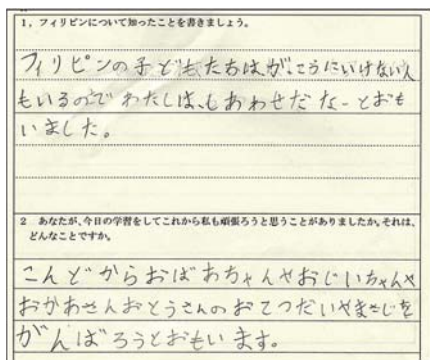 1，フィリピンについて知ったことを書きましょう。
フィリピンの子どもたちは、が、こうにいけない人
もいるので わたしは、しあわせだなーとおも
いました。
2 あなたが、今日の学習をしてこれから私も頑張ろうと思うことがありましたか。それは、
どんなことですか。
こんどからおばあちゃんやおじいちゃんや
おかあさんおとうさんのおてつだいやまさじを
がんばろうとおもいます。